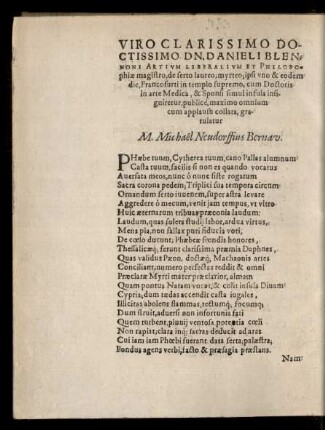 VIRO CLARISSIMO DO-
CTISSIMO DN. DANIELI BLEN-
NONI ARTIVM LIBERALIVM ET PHILOSO-
phiæ magistro, de serto laureo, myrteo, ipsi vno & eodem
die, Francofurti in templo supremo, cum Doctoris
in arte Medica, & Sponsi simul insula insi-
gniretur, publicè, maximo omnium
cum applausu collata, gra-
tulatur
M. Michaël Neudorffius Bernav.
PHœbe tuum, Cytherea tuum, cano Pallas alumnum
Casta tuum, facilis si non es quando vocatus
Aversata meos, nunc ô nunc siste rogatum
Sacra corona pedem, Triplici sua tempora circum
Omandum serto iuvenem, super astra levare
Aggredere ô mecum, venit jam tempus, vt vitro
Huic æternarum tribuas præconia laudum:
Laudum, quas solers studij labor, ardua virtus,
Mens pia, non fallax puri fiducia voti,
De cœlo durunt; Phœbeæ frondis honores,
Thessalicæq; ferunt clarissima præmia Daphnes,
Quas validus Pæon, doctæq; Machaonis artes
Conciliant, numero perfectas reddit & omni
Præclaræ Myrti mater præclarior, almam
Quam pontus Natam vocat, & colit insula Divum
Cypris, dum tædas accendit casta jugales,
Illicitas abolens flammas, tectumq; focumq;
Dum struit, adversi non infortunii fati
Quem turbent, pluuij ventosa potentia cœli
Non rapiat; clara inq; sacras deducit ad aras
Cui jam jam Phœbi fuerunt data serta; palæstra,
Fundus agens verbi, facto & præsagia præstans.
Nam: